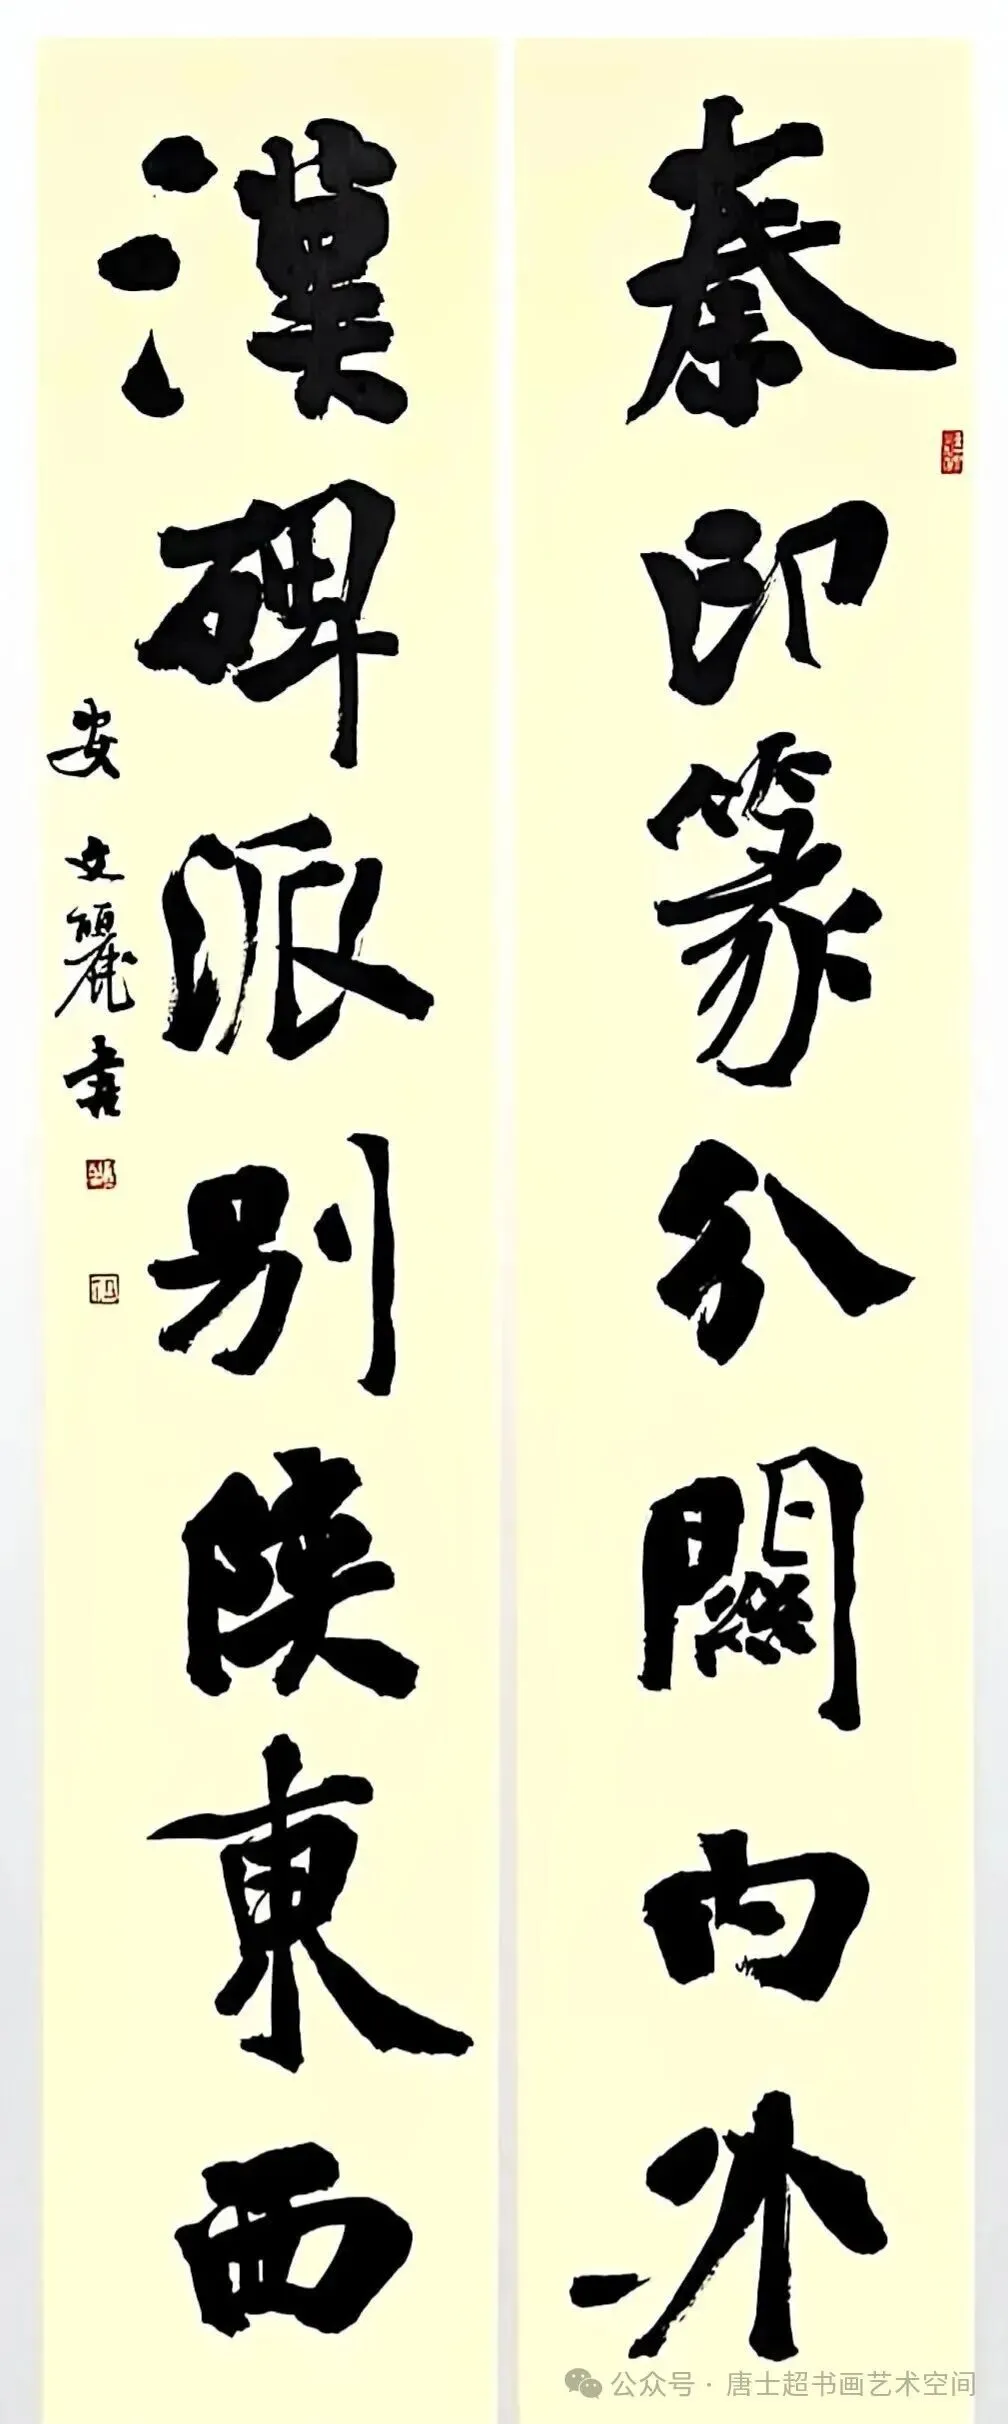 秦印篆分關内外
漢碑派别陝東西
安文麗書
公众号·唐士超书画艺术空间